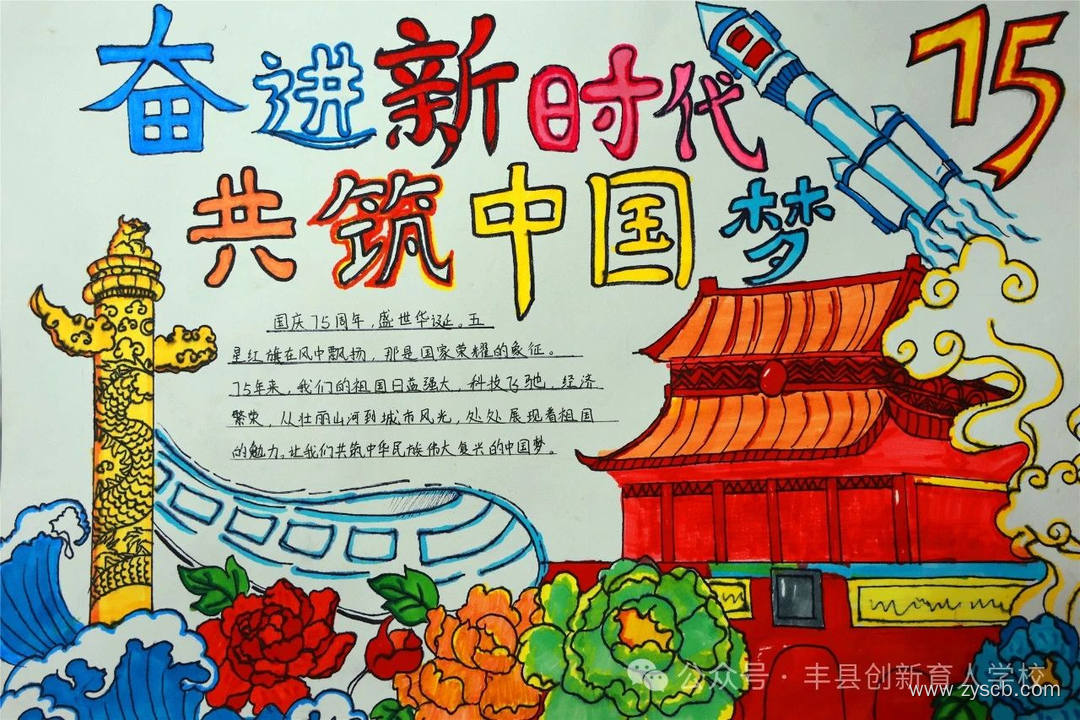 奋进新时代
75
共筑中国梦
国庆75周年，盛世华诞。五
星红旗在风中飘扬，那是国家荣耀的象征。
75年来，我们的祖国日益强大，科技飞驰，经济
繁荣，从壮丽山河到城市风光，处处展现着祖国
的魅力。让我们共筑中华民族伟大复兴的中国梦。
公众号·丰县创新育人学校
www.zyscb.com